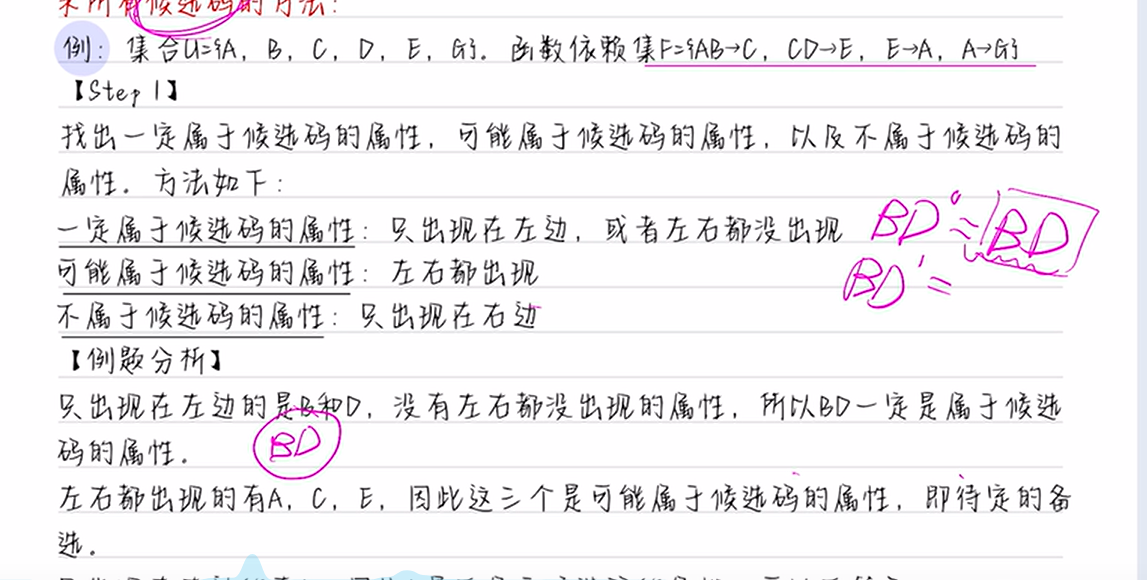 求所有候选码的方法：
例：集合U={A, B, C, D, E, G}. 函数依赖集F={AB→C, CD→E, E→A, A→G}
【Step 1】
找出一定属于候选码的属性, 可能属于候选码的属性, 以及不属于候选码的
属性. 方法如下：
一定属于候选码的属性：只出现在左边, 或者左右都没出现
BD⁰=BD
可能属于候选码的属性：左右都出现
BD'=
不属于候选码的属性：只出现在右边
【例题分析】
只出现在左边的是B和D, 没有左右都没出现的属性, 所以BD一定是属于候选
码的属性.
BD
左右都出现的有A, C, E, 因此这三个是可能属于候选码的属性, 即待定的备
选.